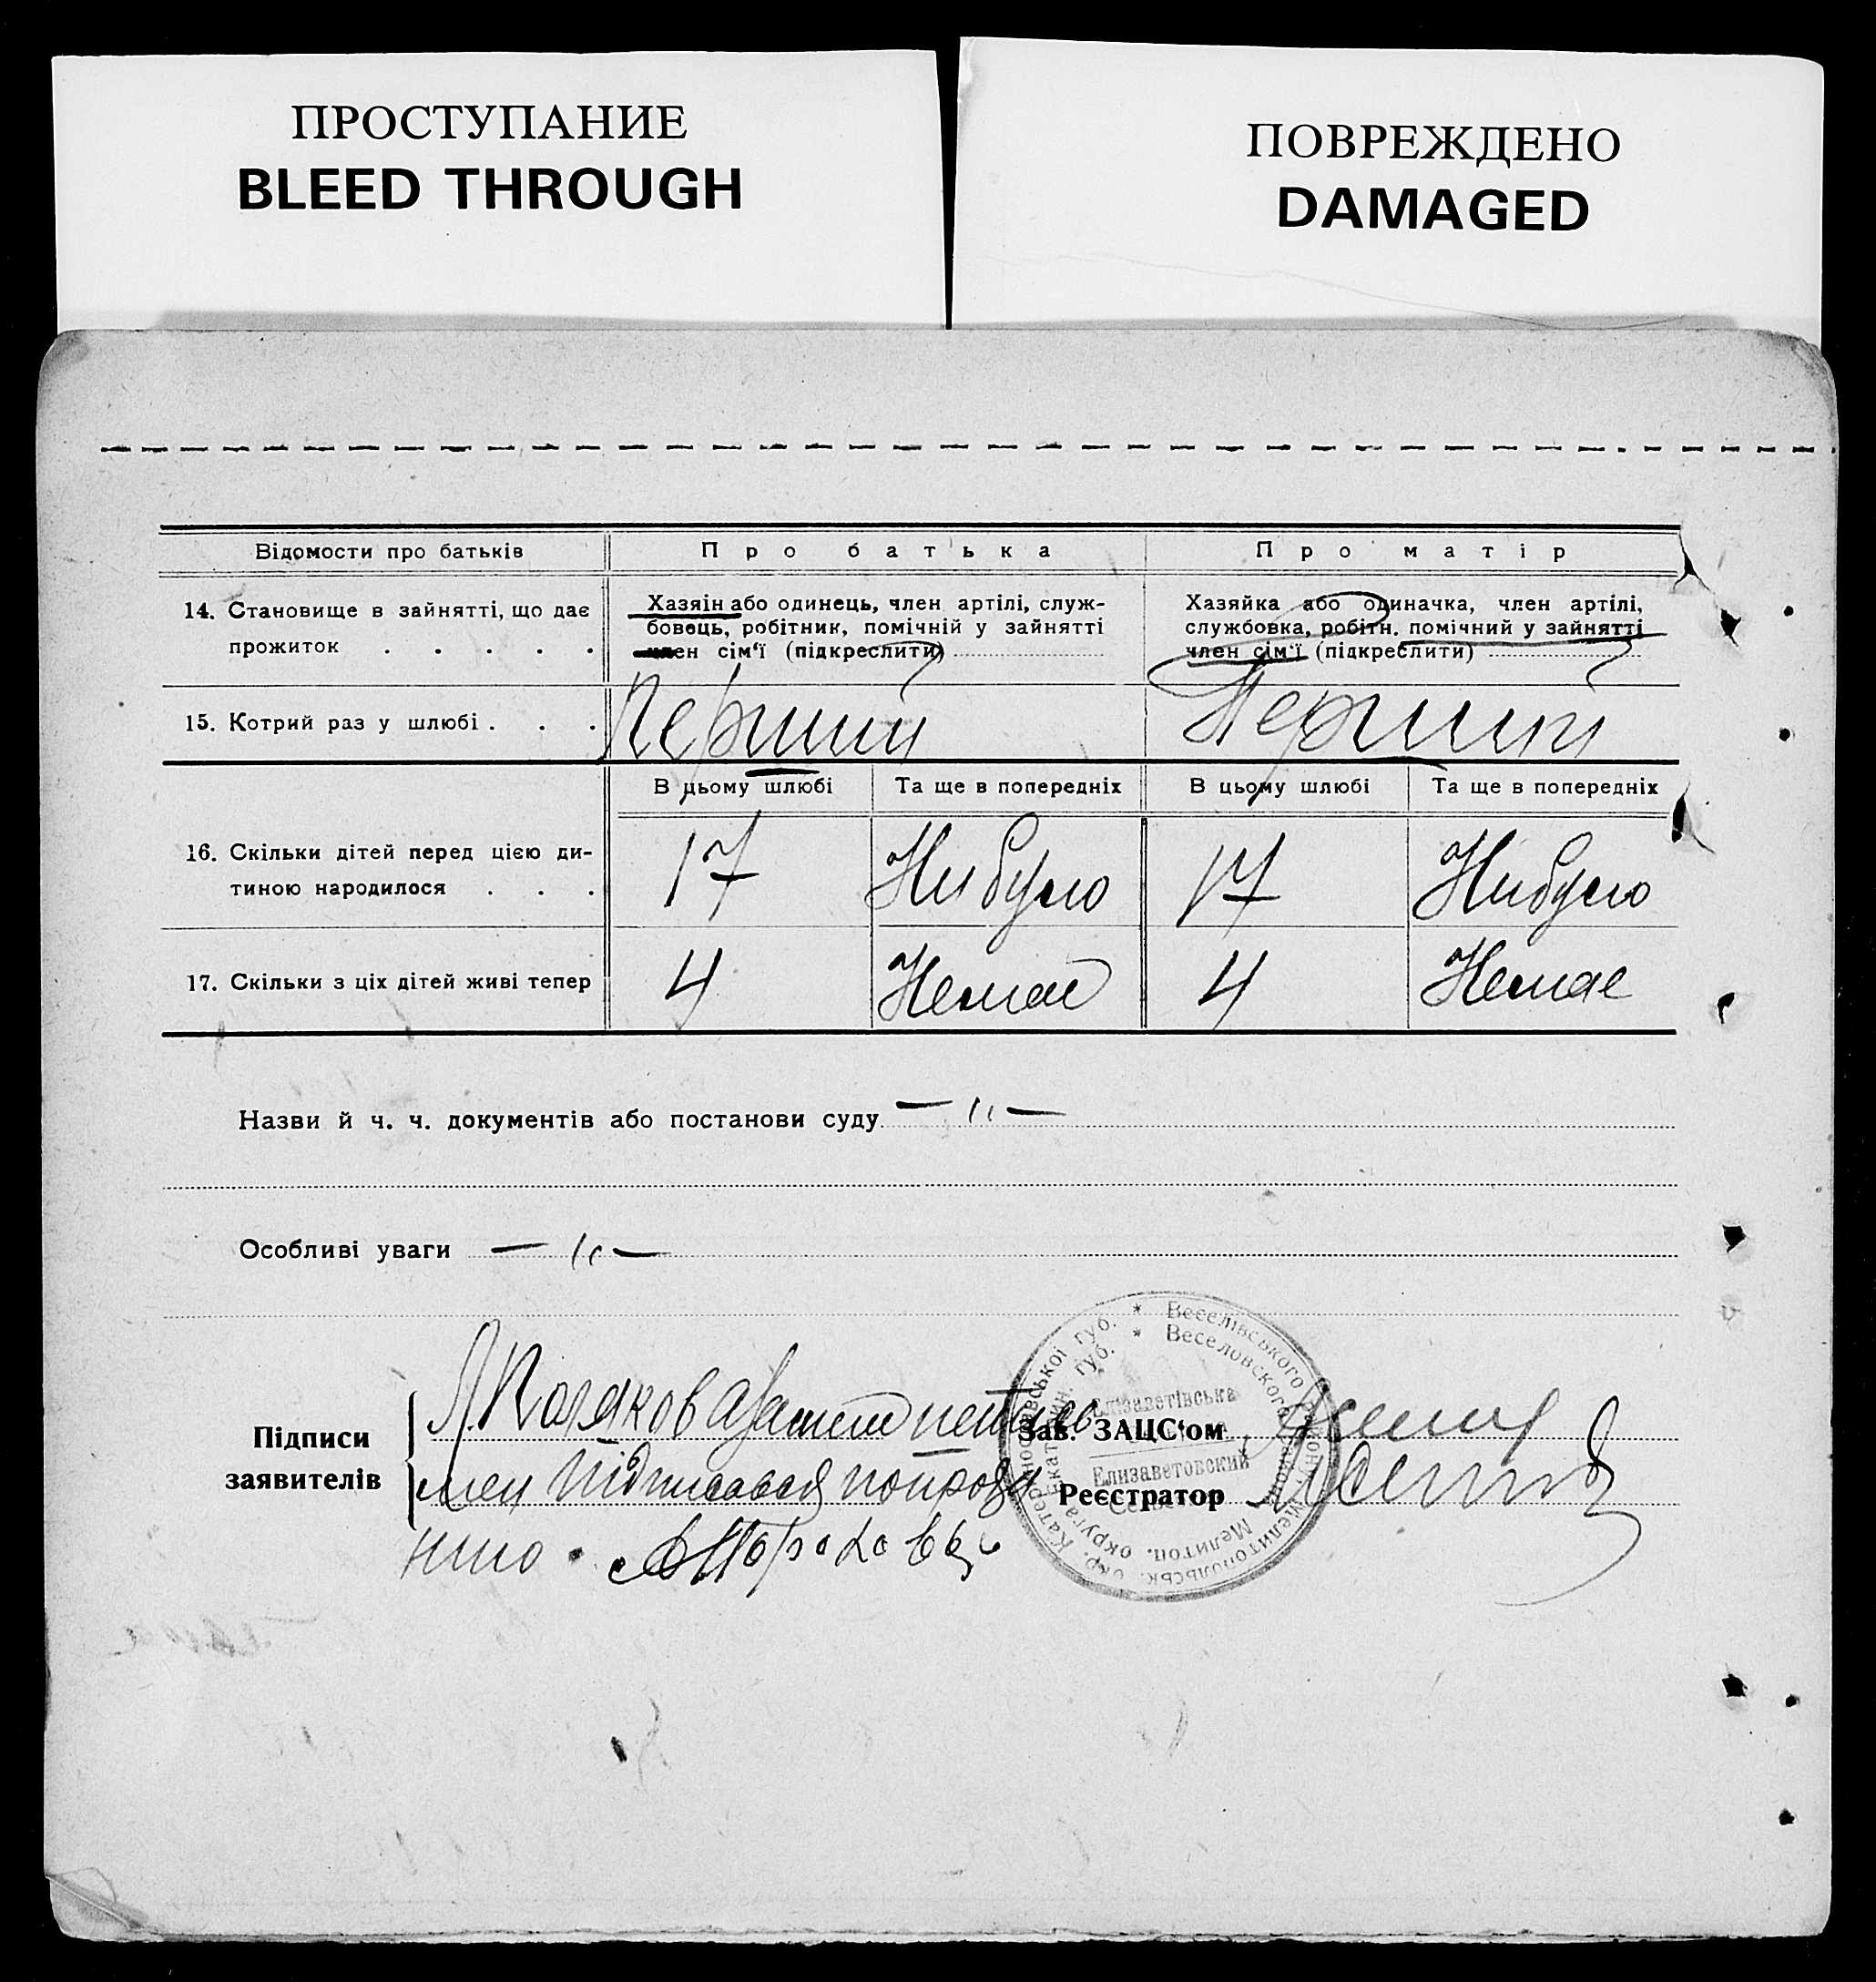 ПРОСТУПАНИЕ
BLEED THROUGH
ПОВРЕЖДЕНО
DAMAGED
Відомости про батьків
Про батька
Про матір
14. Становище в зайнятті, що дає
прожиток . . . . .
Хазяін або одинець, член артілі, служ-
бовець, робітник, помічній у зайнятті
член сім'ї (підкреслити)
Хазяйка або одиначка, член артілі,
службовка, робітн. помічний у зайнятті
член сім'ї (підкреслити)
15. Котрий раз у шлюбі . . .
Перший
Перший
В цьому шлюбі
Та ще в попередніх
В цьому шлюбі
Та ще в попередніх
16. Скільки дітей перед цією ди-
тиною народилося . . .
17
Нибуло
17
Нибуло
17. Скільки з ціх дітей живі тепер
4
Немає
4
Немае
Назви й ч. ч. документів або постанови суду — " —
Особливі уваги — " —
Підписи
заявителів
Поляков
підписався
Зав. ЗАЦС'ом
Реєстратор
* Веселівського району Мелитопольськ. окр. Катеринославської губ.
* Веселовского района Мелитоп. округа Екатерин. губ.
Єлізаветівська
Елизаветовский